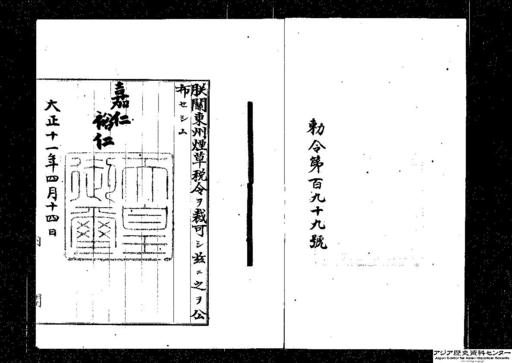 勅令第百九十九號
朕關東州煙草税令ヲ裁可シ茲ニ之ヲ公
布セシム
嘉仁
裕仁
天皇
御璽
大正十一年四月十四日
内閣
アジア歴史資料センター
Japan Center for Asian Historical Records